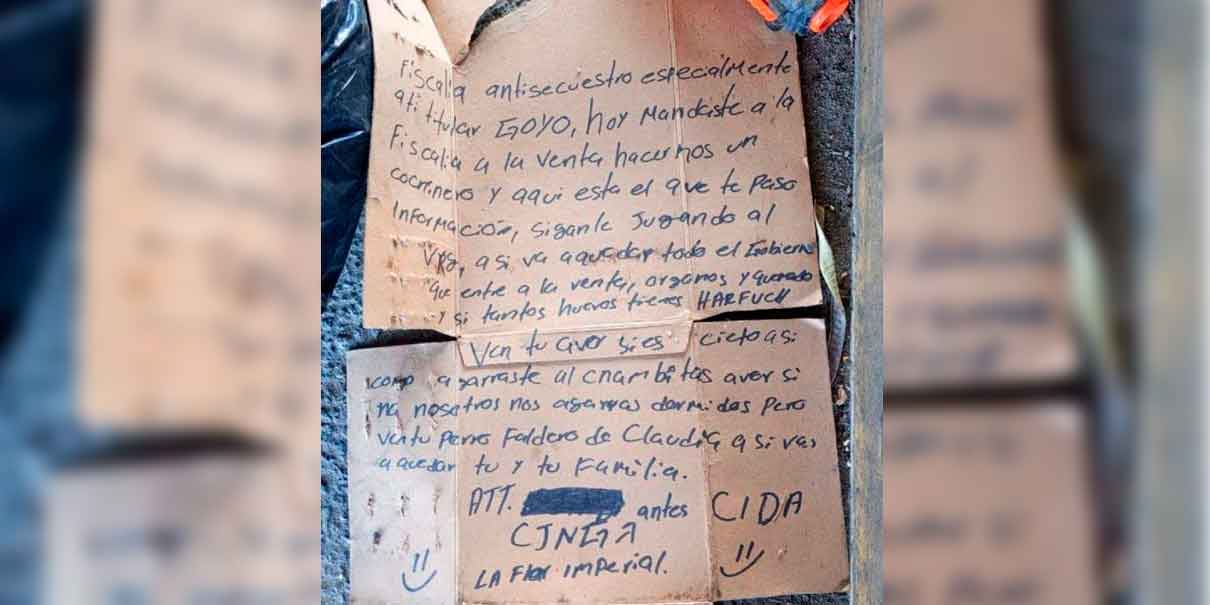 Fiscalia antisecuestro especialmente
ati titular GOYO, hoy Mandaste a la
Fiscalia a la venta hacernos un
cocrinero y aqui esta el que te Paso
Información, siganle Jugando al
Vrg, a si va a quedar todo el Gobierno
que entre a la venta, organos y querado
y si tantos huevos tienes HARFUCH
Ven tu aver si es cieto asi
como agarraste al chambitas aver si
na nosotros nos agarras dormidos Pero
ven tu Perro Faldero de Claudia a si vas
a quedar tu y tu Familia.
ATT. antes CIDA
CJNGA
LA Flor imperial.